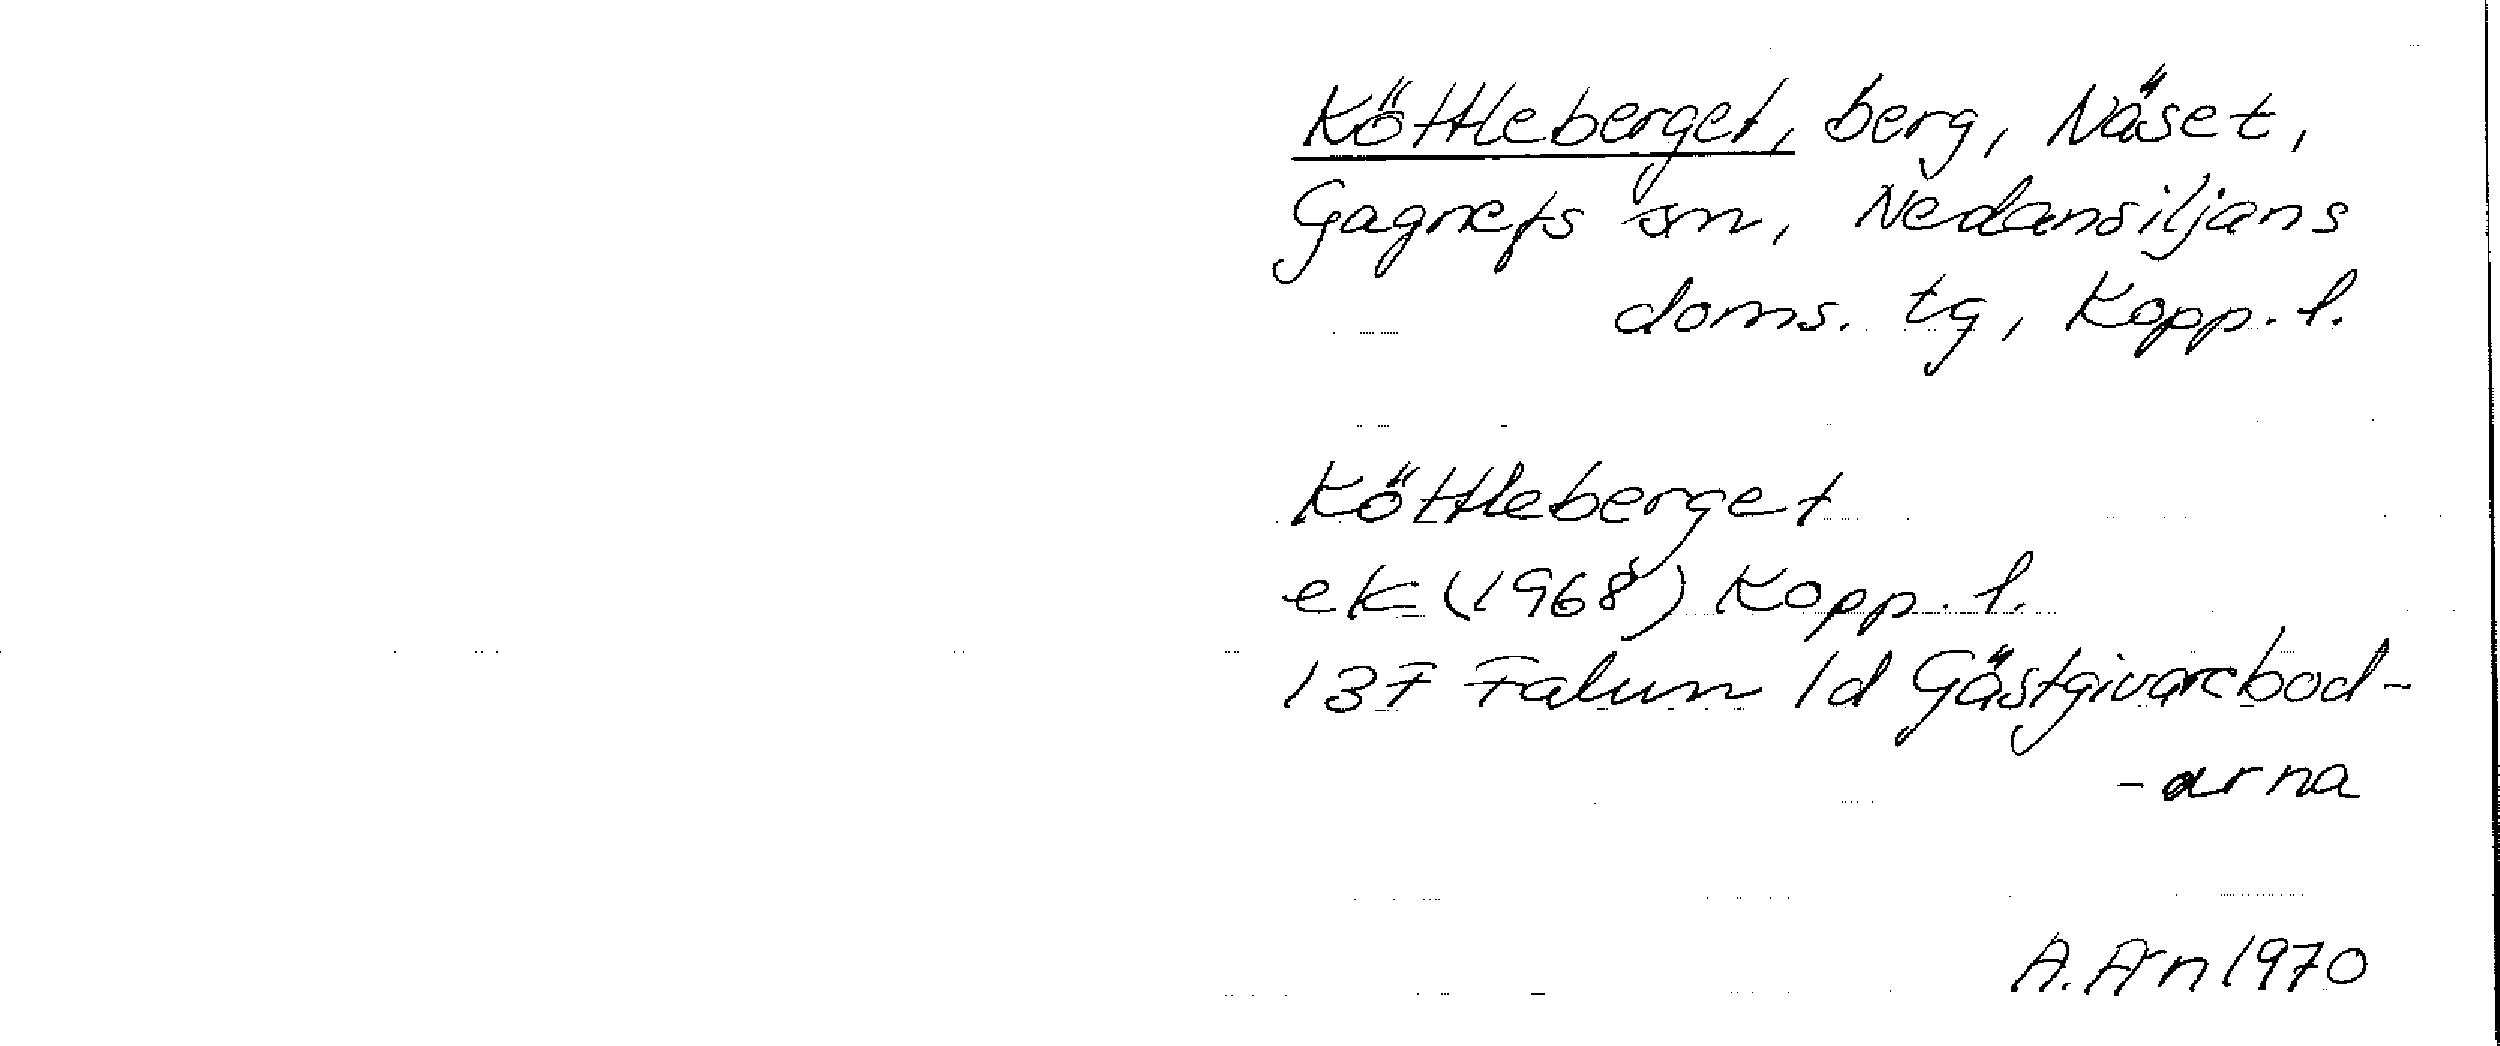 Köttleberget, berg, Näset,
Gagnefs sn, Nedansiljans
doms. tg, Kopp. l.
Köttleberget
ek (1968) Kopp. l.
13F Falun 1d Gästgivarebod-
-arna
A. Arn 1970